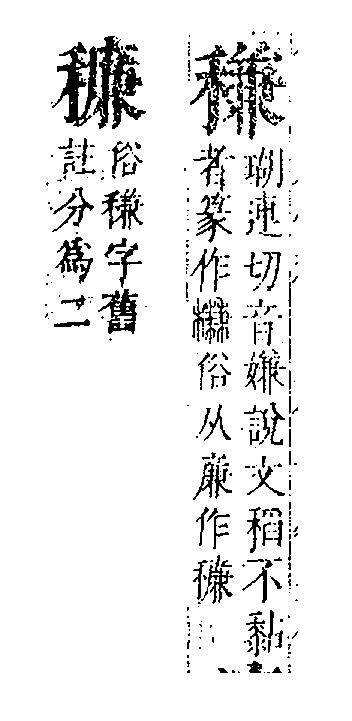 稴
瑚連切音嫌說文稻不黏
者篆作俗从廉作
俗稴字舊
註分爲二